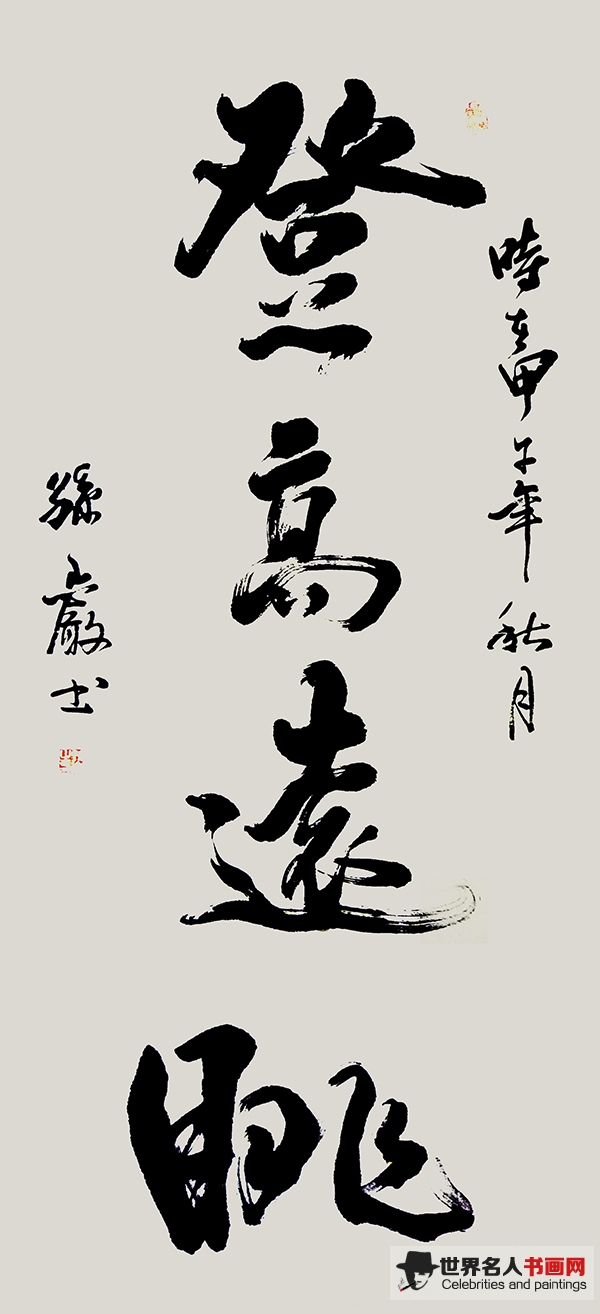 時在甲子年秋月
登高遠眺
孫巖书
世界名人书画网
Celebrities and paintings